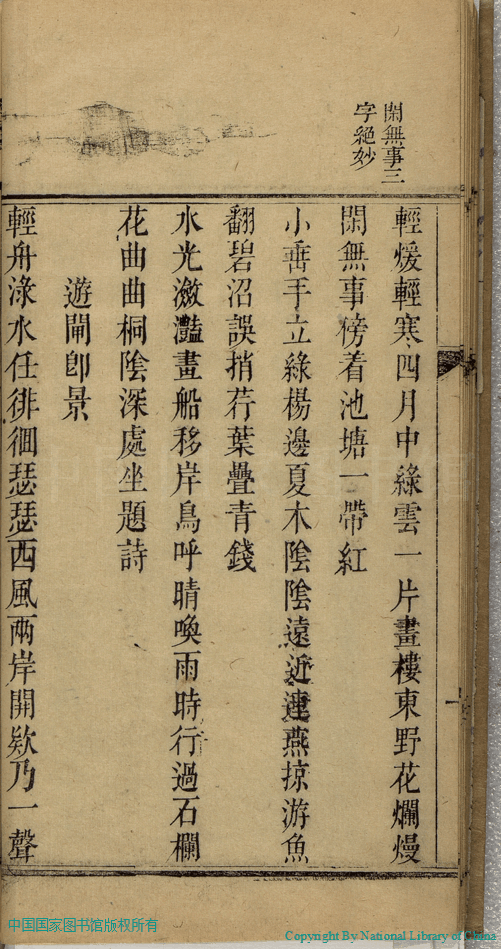 閑無事三
字絕妙
輕煖輕寒四月中綠雲一片畫樓東野花爛熳
閑無事傍着池塘一帶紅
小垂手立綠楊邊夏木陰陰遠近連燕掠游魚
翻碧沼誤捎荇葉疊青錢
水光瀲灩畫船移岸鳥呼晴喚雨時行過石欄
花曲曲桐陰深處坐題詩
遊閘卽景
輕舟淥水任徘徊瑟瑟西風兩岸開欸乃一聲
中国国家图书馆版权所有
Copyright By National Library of China